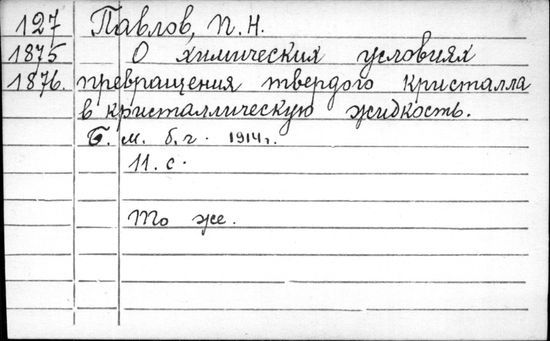 127 Павлов, П. Н.
1875 О химических условиях
1876. превращения твердого кристалла
в кристаллическую жидкость.
Б. м. б. г. 1914 г.
11. с.
То же.